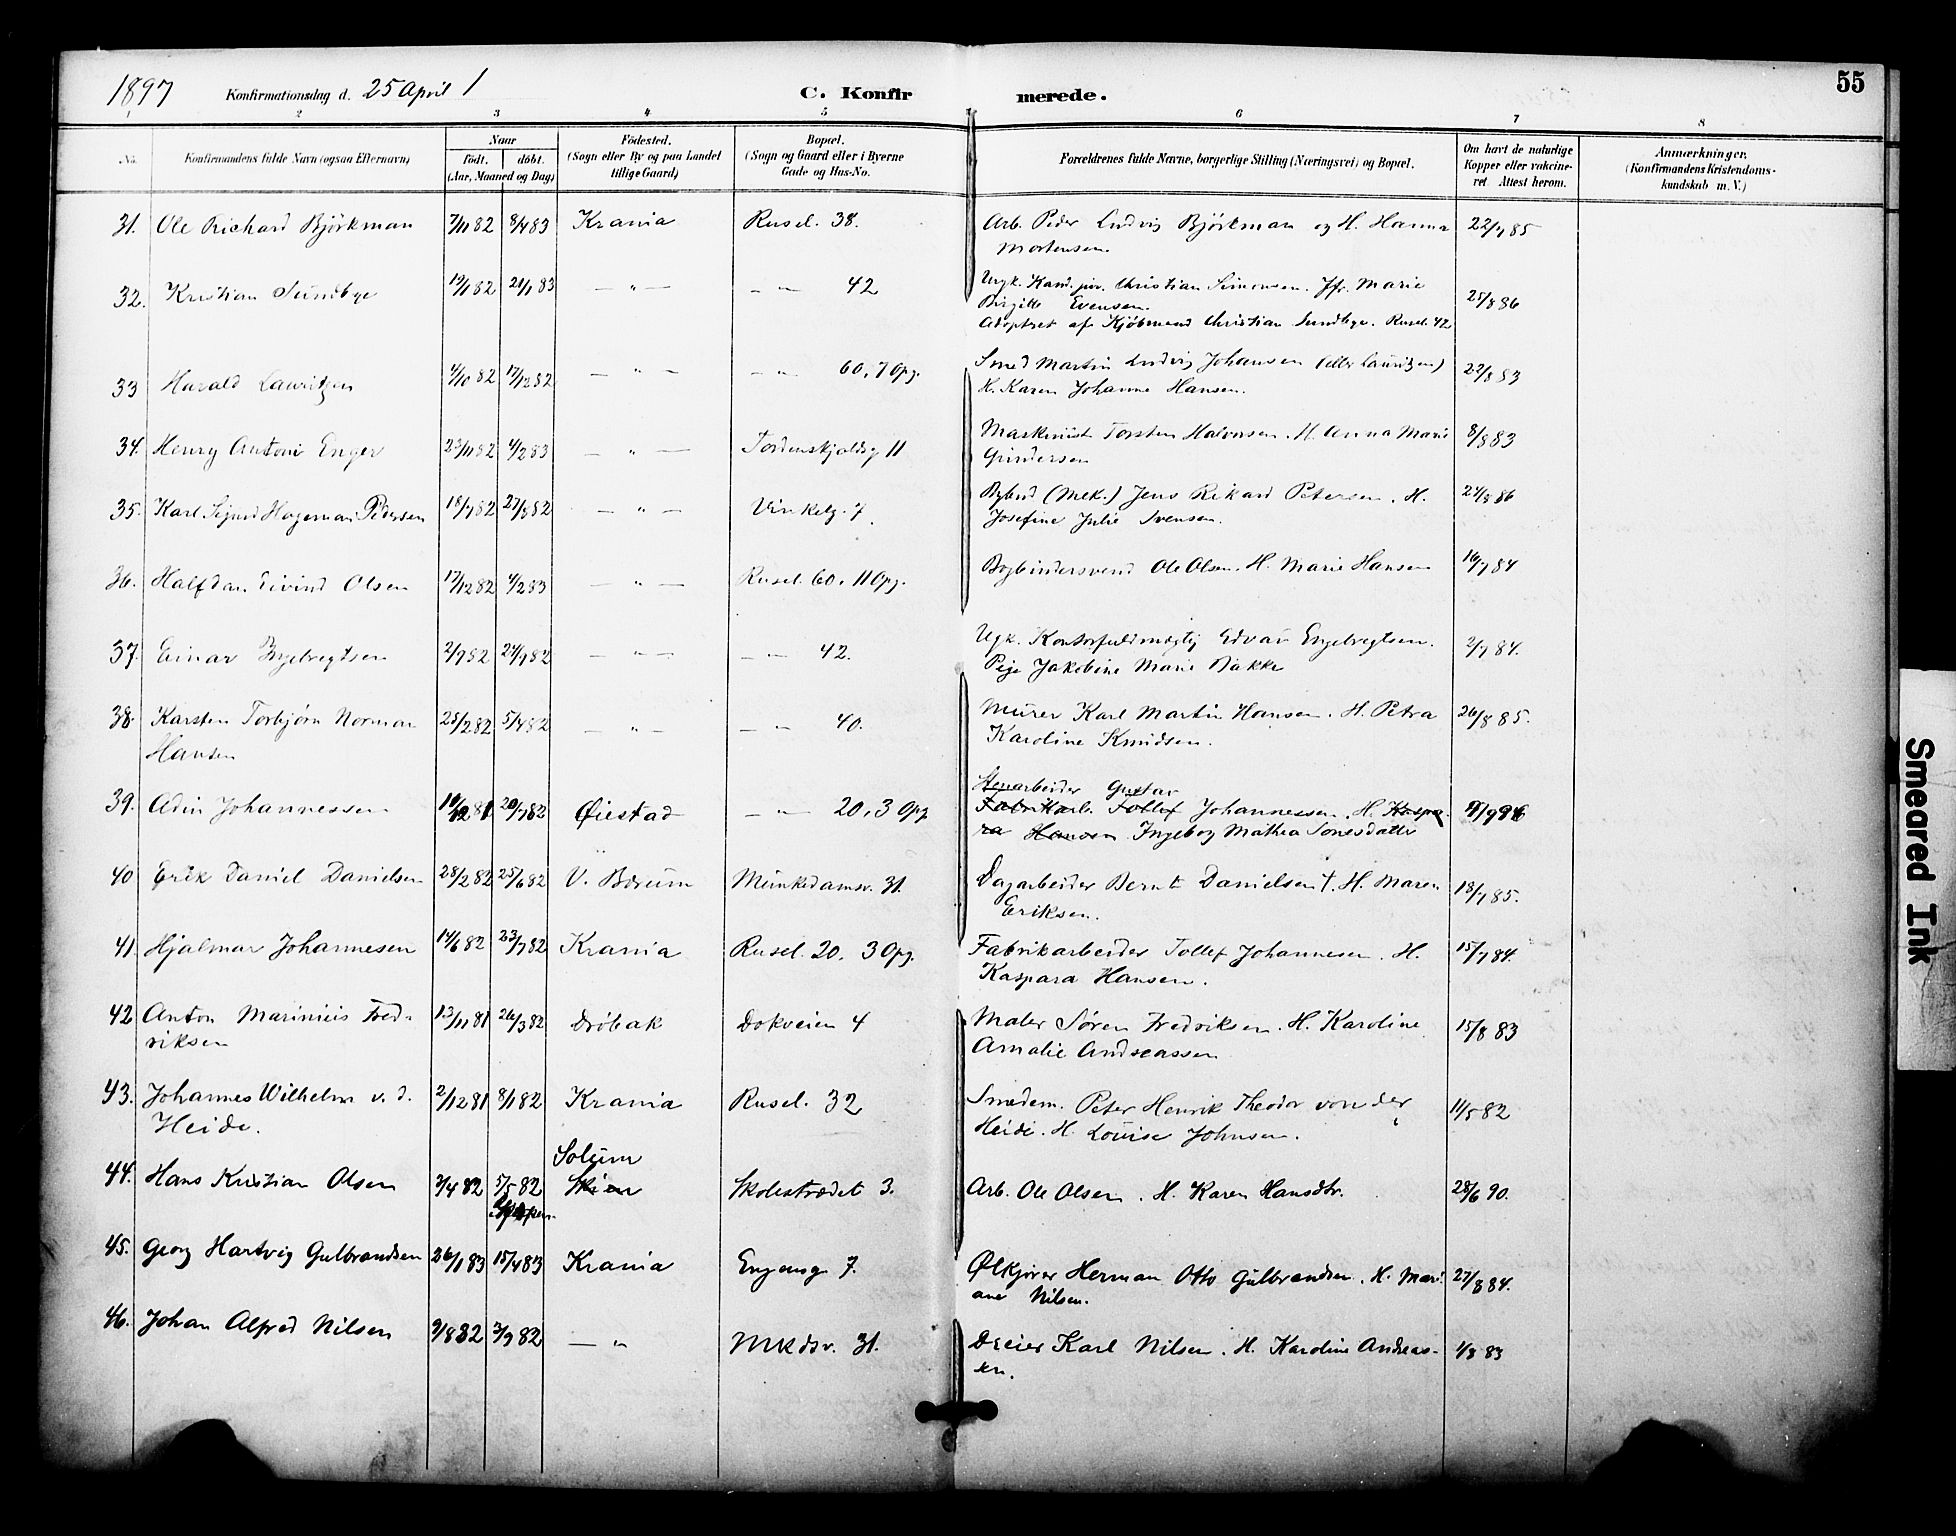 1897 Konfirmationsdag d. 25 April 1 C. Konfirmerede. 55
1 2 3 4 5 6 7 8
No. Konfirmandens fulde Navn (ogsaa Efternavn) Naar født. døbt. (Aar, Maaned og Dag) Fødested. (Sogn eller By og paa Landet tillige Gaard) Bopæl. (Sogn og Gaard eller i Byerne Gade og Hus-No. Forældrenes fulde Navne, borgerlige Stilling (Næringsvei) og Bopæl. Om havt de naturlige Kopper eller vakcineret Attest herom. Anmærkninger. (Konfirmandens Kristendomskundskab m. V.)
31. Ole Richard Björkman 7/11 82 8/4 83 Krania Rusel. 38. Arb. Peder Ludvig Björkman og H. Hanna
Mortensen 22/7 85
32. Kristian Sundbye 21/1 83 — " — — " — 42 Ugk. Kand. jur. Christian Simonsen. Jfr. Marie
Birgitte Evensen. 25/8 86
Adoptret af Kjøbmand Christian Sundbye. Rusel. 42
33 Harald Lauritzen 17/12 82 — " — — " — 60, 7 Opg. Smed Martin Ludvig Johansen (eller Lauritzen)
H. Karen Johanne Hansen. 22/8 83
34. Henry Antoni Enger 23/11 82 4/2 83 — " — Tordenskjoldsg 11 Maskinist Torsten Halvorsen. H. Anna Marie
Gundersen 8/8 83
35. Karl Sigurd Hageman Pedersen 18/7 82 27/8 82 — " — Vinkelg. 7 Bybud (Mek.) Jens Rikard Petersen. H.
Josefine Julie Svensen. 24/8 86
36. Halfdan Eivind Olsen 17/12 82 4/2 83 — " — Rusel. 60, 11 Opg. Bogbindersvend Ole Olsen. H. Marie Hansen 16/7 84
37. Einar Ingebregtsen 2/7 82 — " — — " — 42. Ugk. Kontorfuldmægtig Edvar Engebregtsen.
Pige Jakobine Marie Bakke 2/7 84.
38. Karsten Torbjørn Norman 25/2 82 5/4 82 — " — — " — 40. Murer Karl Martin Hansen. H. Petra
Hansen Karoline Knudsen. 26/8 85.
39. Adin Johannessen 20/7 82 Øiestad — " — 20, 3 Opg Stenarbeider Gustav
Fabrikarb. Tollef Johannessen. H. Kaspa-
ra Hansen Ingebog Mathea Tonesdatter
40 Erik Daniel Danielsen 28/2 82 25/6 82 V. Bærum Munkedamsv. 31. Dagarbeider Bernt Danielsen †. H. Maren
Eriksen. 18/7 85.
41. Hjalmar Johannesen 14/6 82 23/7 82 Krania Rusel. 20, 3 Opg. Fabrikarbeider Tollef Johannesen. H.
Kaspara Hansen. 15/7 84.
42 Anton Marinius Fred- 13/11 81 26/3 82 Drøbak Dokveien 4 Maler Søren Fredriksen. H. Karoline
riksen Amalie Andreassen 15/8 83
43. Johannes Wilhelm v. d. 2/12 81 8/1 82 Krania Rusel. 32 Smedem. Peter Henrik Theodor von der
Heide. Heide. H. Louise Johnsen. 11/5 82
Solum
44. Hans Kristian Olsen 3/4 82 5/5 82 Skien Skolestrædet 3. Arb. Ole Olsen. H. Karen Hansdtr. 28/6 90.
45. Georg Hartvig Gulbrandsen 26/1 83 15/4 83 Krania Engensg 7. Ølkjører Herman Otto Gulbrandsen. H. Mari-
ane Nilsen. 27/8 84.
46. Johan Alfred Nilsen 9/8 82 3/9 82 — " Mkdsv. 31. Dreier Karl Nilsen. H. Karoline Andreas-
en. 1/3 83
Smeared Ink